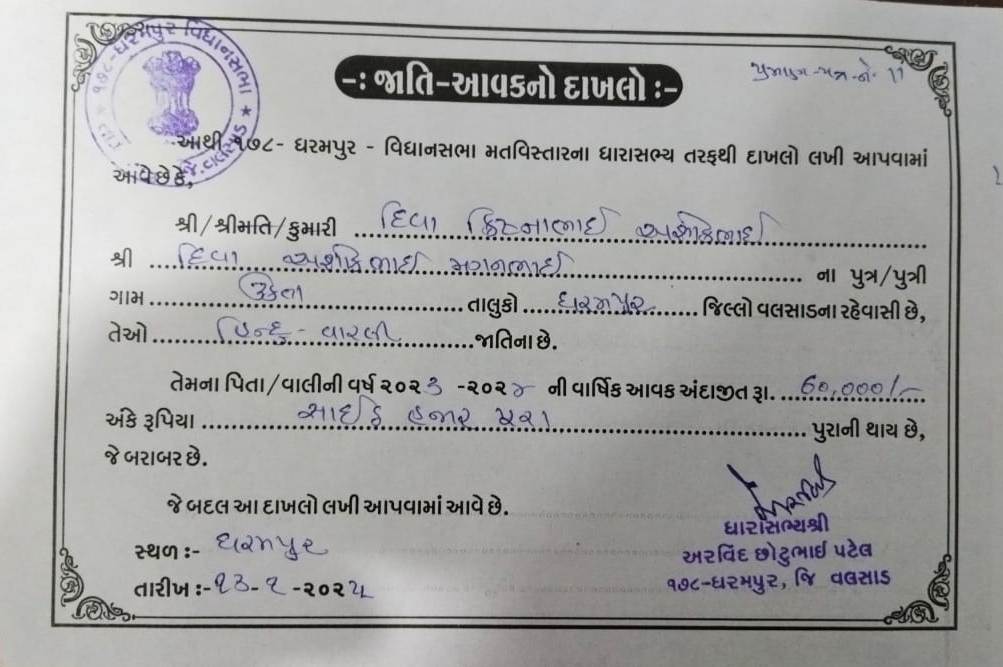 ૧૭૮-ધરમપુર વિધાનસભા
જિ. વલસાડ
-: જાતિ-આવકનો દાખલો :-
પ્રમાણ-પત્ર-નં- 11
આથી ૧૭૮- ધરમપુર - વિધાનસભા મતવિસ્તારના ધારાસભ્ય તરફથી દાખલો લખી આપવામાં
આવે છે કે,
શ્રી/શ્રીમતિ/કુમારી દિવા ક્રિષ્નાભાઈ અશોકભાઈ
શ્રી દિવા અશોકભાઈ મગનભાઈ ના પુત્ર/પુત્રી
ગામ તાલુકો ધરમપુર જિલ્લો વલસાડના રહેવાસી છે,
તેઓ હિન્દુ - વારલી જાતિના છે.
તેમના પિતા/વાલીની વર્ષ ૨૦૨૩ -૨૦૨૪ ની વાર્ષિક આવક અંદાજીત રૂા. 60,000/-
અંકે રૂપિયા સાઈઠ હજાર પુરા પુરાની થાય છે,
જે બરાબર છે.
જે બદલ આ દાખલો લખી આપવામાં આવે છે.
સ્થળ :- ધરમપુર
તારીખ :- ૧૩-૧-૨૦૨૫
ધારાસભ્યશ્રી
અરવિંદ છોટુભાઈ પટેલ
૧૭૮-ધરમપુર, જિ વલસાડ